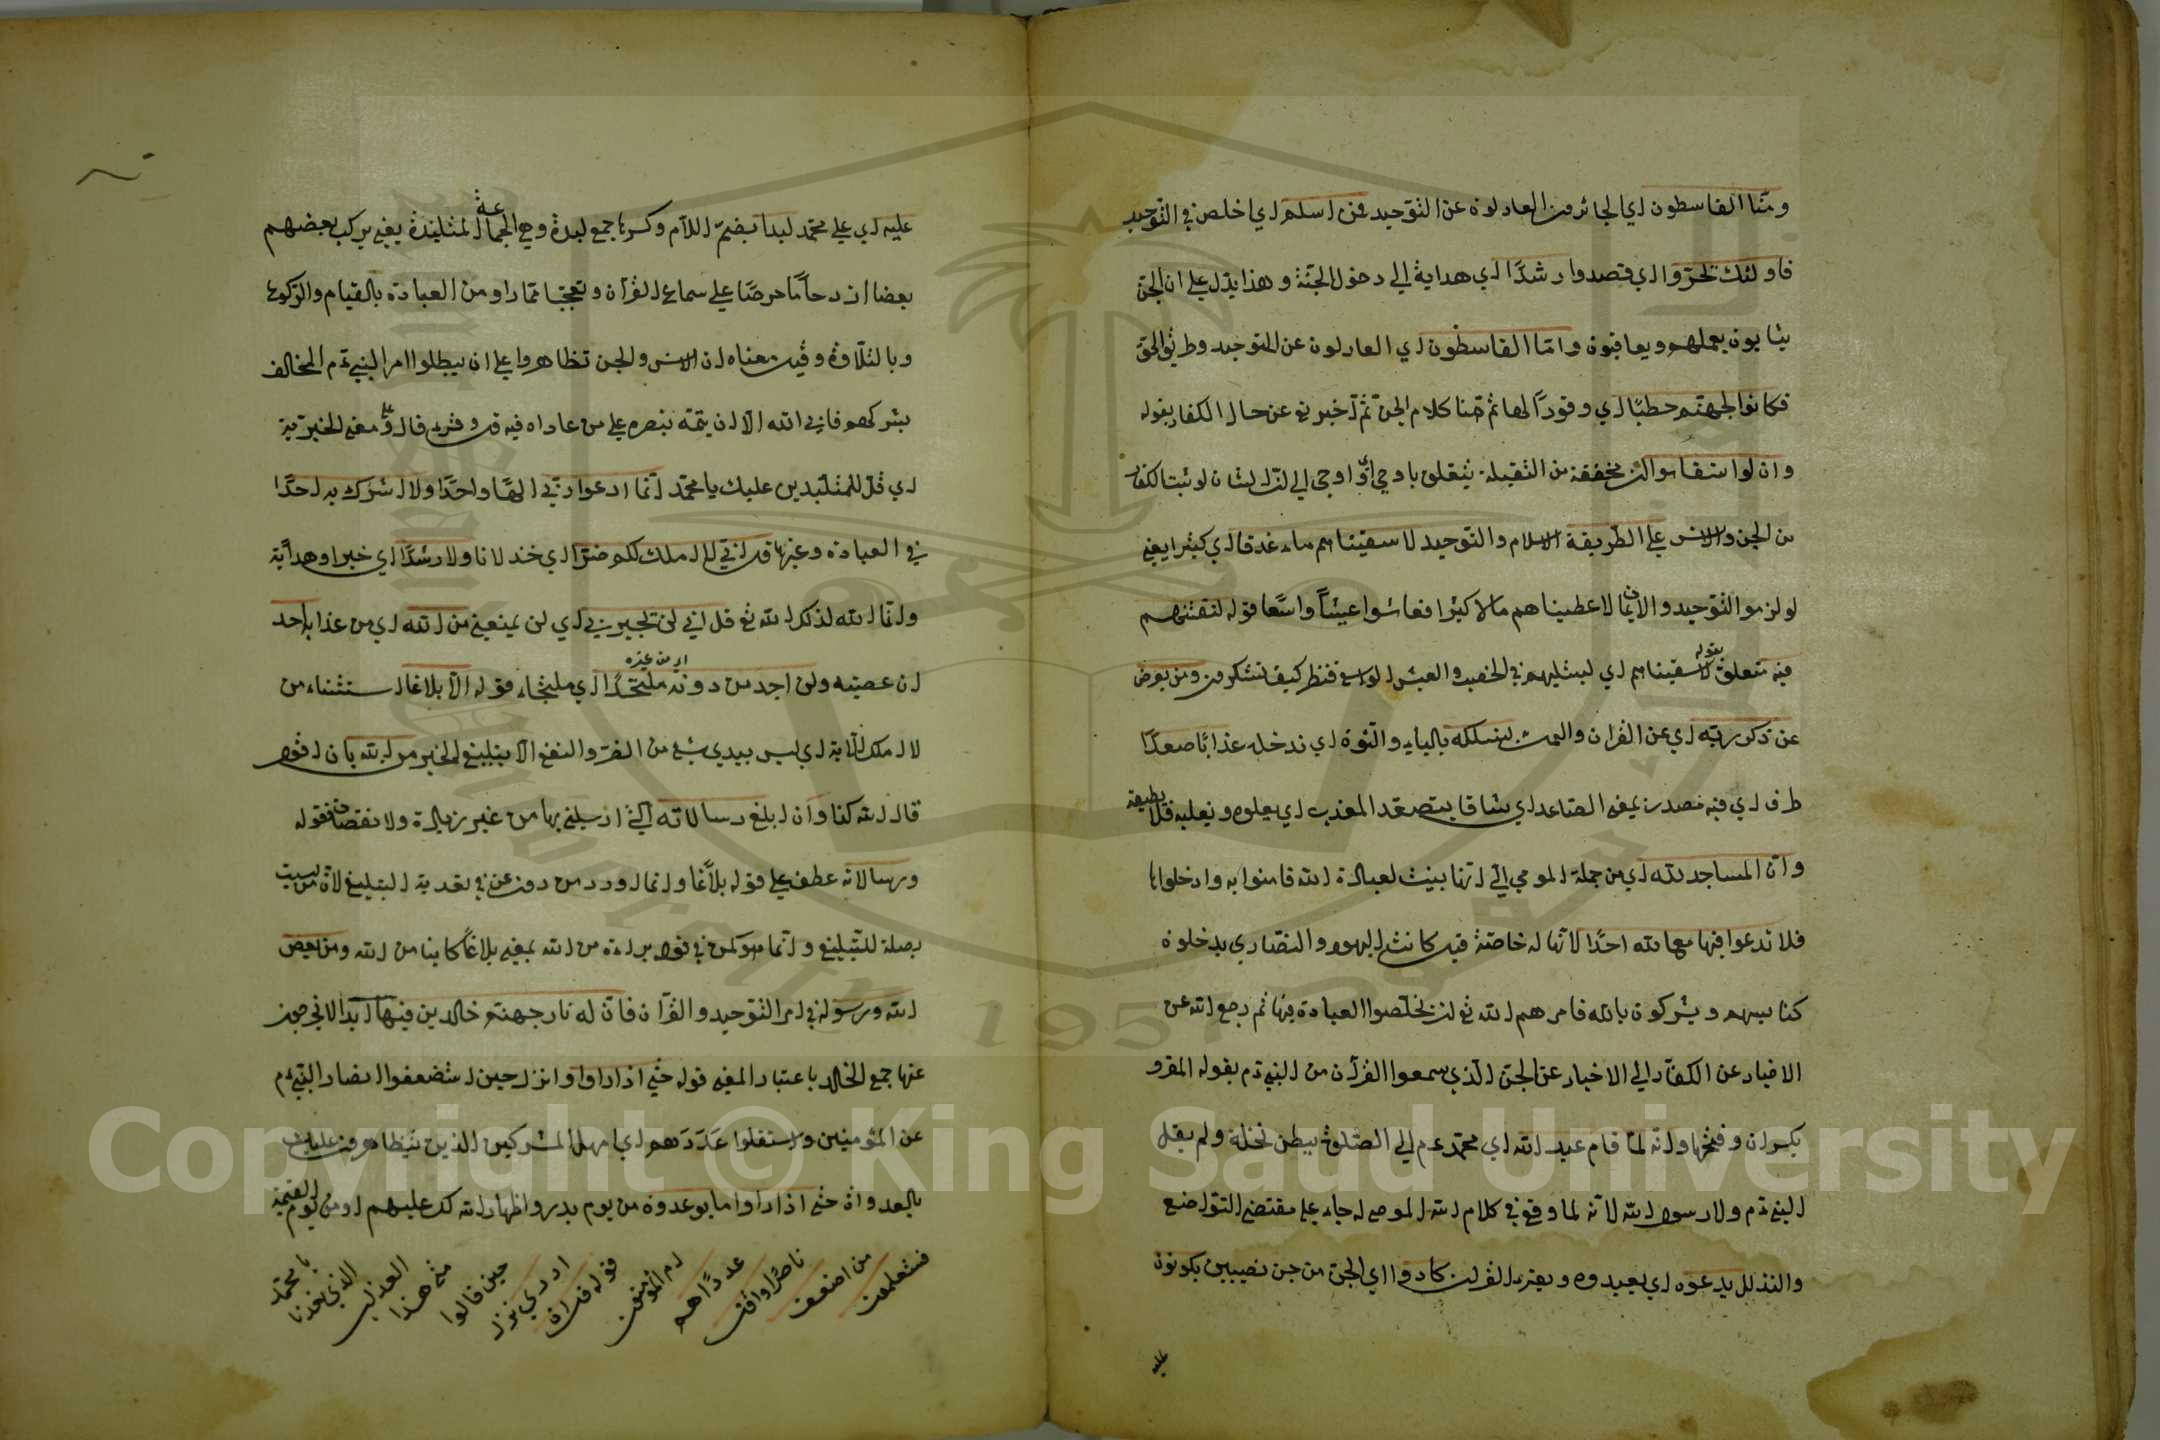 ومنا القاسطون اي الجائرون العادلون عن التوحيد فمن اسلم اي اخلص في التوحيد
فاولئك تحروا اي قصدوا رشدا اي هداية الي دخول الجنة وهذا يدل علي ان الجن
يثابون بعملهم ويعاقبون واما القاسطون اي العادلون عن التوحيد وطريق الحق
فكانوا لجهنم حطبا اي وقودا لها ثم هنا كلام الجن ثم اخبر عن حال الكفار بقوله
وان لو استقاموا ان مخففة من الثقيلة يتعلق باوحي اي اوحي الي ان الشان لو ثبت الكفار
من الجن والانس علي الطريقة الاسلام والتوحيد لاسقيناهم ماء غدقا اي كثيرا يعني
لو لزموا التوحيد والايمان لاعطيناهم مالا كثيرا فعاشوا عيشا واسعا قوله لنفتنهم
فيه متعلق بقوله لاسقيناهم اي لنبتليهم في الخصب والعيش الواسع فننظر كيف تشكرون ومن يعرض
عن ذكر ربه اي عن القران والموت نسلكه بالياء والنون اي ندخله عذابا صعدا
ظرف اي فيه مصدر بمعني الصاعد اي شاقا يتصعد المعذب اي يعلوه ويغلبه فلا يطيقه
وان المساجد لله اي من جملة الموحي الي انها بنيت لعبادة الله فامنوا به وادخلوا
فلا تدعوا فيها مع الله احدا لانها له خاصة قيل كانت اليهود والنصاري يدخلون
كنايسهم ويشركون بالله فامرهم الله ان يخلصوا العبادة فيها ثم رجع الله عن
الاخبار عن الكفار الي الاخبار عن الجن الذي سمعوا القرآن من النبي ءم بقوله المقرو
بكسر ان وفتحها وانه لما قام عبد الله اي محمد ءم الي الصلوة ببطن نخلة ولم يقل
النبي ءم ولا رسول الله لانه لما وقع في كلام الله الموصي له جاء علي مقتضي التواضع
والتذلل يدعوه اي يعبده ويقرء القران كادوا اي الجن من جن نصيبين يكونون
عليه
عليه اي علي محمد لبدا بضم اللام وكسرها جمع لبدة وهي الجماعة المتلبدة يعني يركب بعضهم
بعضا ازدحاما حرصا علي سماع القرآن وتعجبا مما راو من العبادة بالقيام والركوع
وبالتلاوة وقيل معناه ان الانس والجن تظاهروا علي ان يبطلوا امر النبي ءم المخالف
بشركهم فابي الله الا ان يتمه بنصره علي من عاداه فيه قل وقرء قال معني الخبرية
اي قل للمتلبدين عليك يا محمد انما ادعوا ربي الها واحدا ولا اشرك به احدا
في العبادة وغيرها قل اني لا املك لكم ضرا اي خذلانا ولا رشدا اي خيرا وهداية
وانما الله لذلك الله قل اني لن تجيرني اي لن يمنعني من الله اي من عذابه احد
ان عصيته ولن اجد من دونه اي من غيره ملتحدا اي ملجاء قوله الا بلاغا استثناء من
لا املك الآية اي ليس بيدي شئ من الضر والنفع الا تبليغ الخبر من الله بان اقول
قال الله كذا وان ابلغ رسالاته التي ارسلني بها من غير زيادة ولا نقصان فقوله
ورسالاته عطف علي قوله بلاغا وانما اورد من دون عن في تعدية التبليغ لان من ليست
بصلة للتبليغ وانما هو كمن في قوله براءة من الله بمعني بلاغا كاينا من الله ومن يعص
الله ورسوله في امر التوحيد والقرآن فان له نار جهنم خالدين فيها ابدا لا يخرجون
عنها جمع الخالد باعتبار المعني قوله حتي اذا راوا وانزل حين استضعفوا انصار النبي ءم
عن المؤمنين واستقلوا عددهم اي امهل المشركين الذين يتظاهرون عليك
بالعدوان حتي اذا راوا ما يوعدون من يوم بدر واظهار الله لك عليهم او من يوم القيمة
فسيعلمون
من اضعف
ناصرا واقل
عددا هم
ام المؤمنون
قوله قل ان
ادري نزل
حين قالوا
متي هذا
العذاب
الذي تعدنا
يا محمد
Copyright © King Saud University
King Saud University
1957